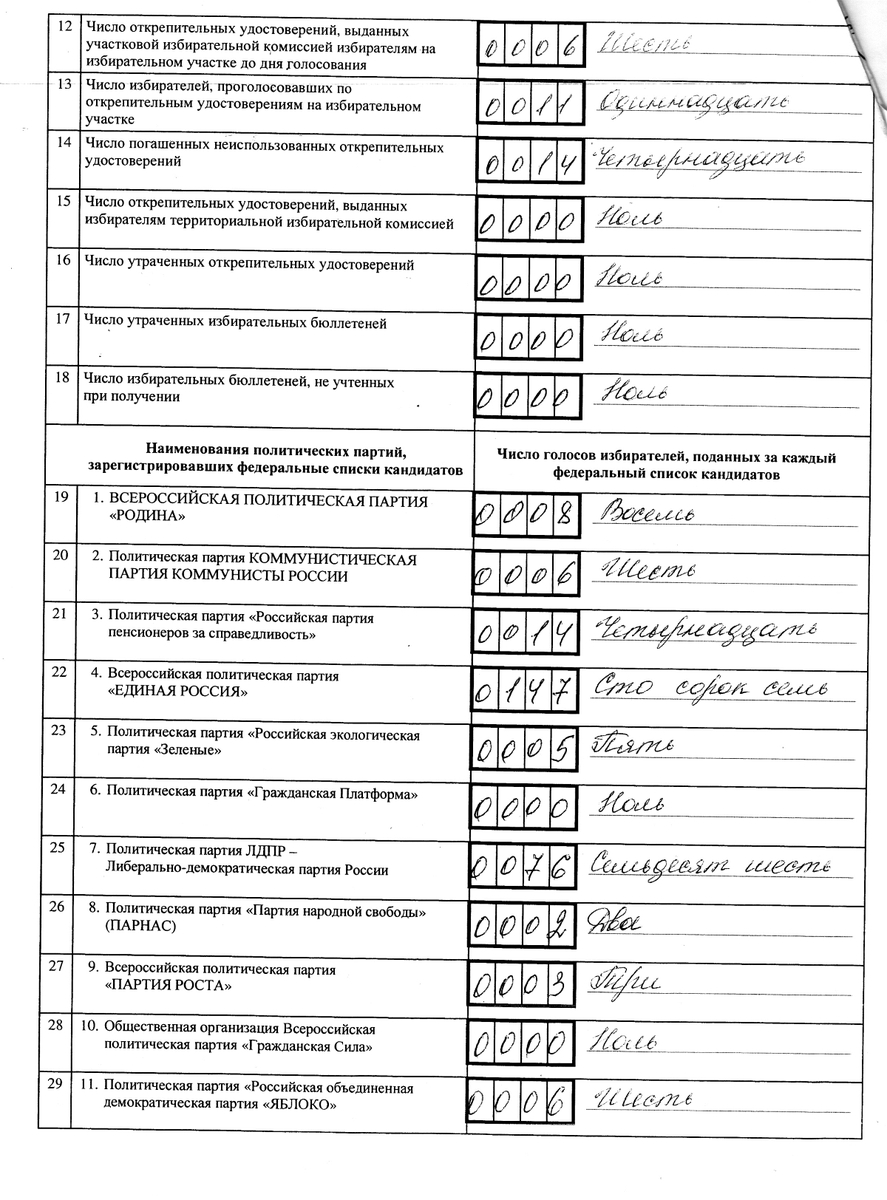 12 Число открепительных удостоверений, выданных
участковой избирательной комиссией избирателям на
избирательном участке до дня голосования
0006 Шесть
13 Число избирателей, проголосовавших по
открепительным удостоверениям на избирательном
участке
0011 Одиннадцать
14 Число погашенных неиспользованных открепительных
удостоверений
0014 Четырнадцать
15 Число открепительных удостоверений, выданных
избирателям территориальной избирательной комиссией
0000 Ноль
16 Число утраченных открепительных удостоверений
0000 Ноль
17 Число утраченных избирательных бюллетеней
0000 Ноль
18 Число избирательных бюллетеней, не учтенных
при получении
0000 Ноль
Наименования политических партий,
зарегистрировавших федеральные списки кандидатов
Число голосов избирателей, поданных за каждый
федеральный список кандидатов
19 1. ВСЕРОССИЙСКАЯ ПОЛИТИЧЕСКАЯ ПАРТИЯ
«РОДИНА»
0008 Восемь
20 2. Политическая партия КОММУНИСТИЧЕСКАЯ
ПАРТИЯ КОММУНИСТЫ РОССИИ
0006 Шесть
21 3. Политическая партия «Российская партия
пенсионеров за справедливость»
0014 Четырнадцать
22 4. Всероссийская политическая партия
«ЕДИНАЯ РОССИЯ»
0147 Сто сорок семь
23 5. Политическая партия «Российская экологическая
партия «Зеленые»
0005 Пять
24 6. Политическая партия «Гражданская Платформа»
0000 Ноль
25 7. Политическая партия ЛДПР –
Либерально-демократическая партия России
0076 Семьдесят шесть
26 8. Политическая партия «Партия народной свободы»
(ПАРНАС)
0002 Два
27 9. Всероссийская политическая партия
«ПАРТИЯ РОСТА»
0003 Три
28 10. Общественная организация Всероссийская
политическая партия «Гражданская Сила»
0000 Ноль
29 11. Политическая партия «Российская объединенная
демократическая партия «ЯБЛОКО»
0006 Шесть